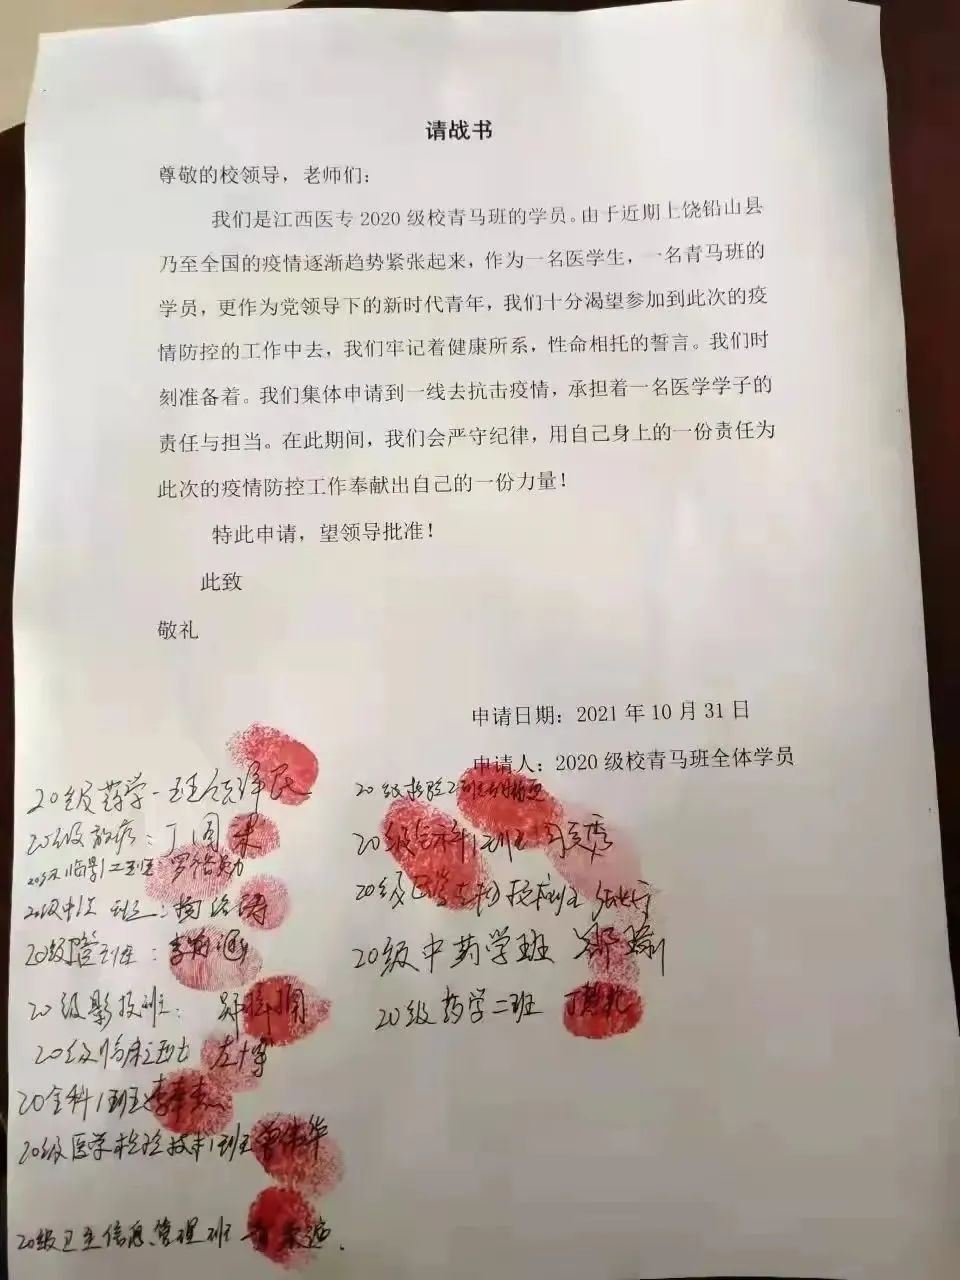 请战书
尊敬的校领导，老师们：
我们是江西医专2020级校青马班的学员。由于近期上饶铅山县
乃至全国的疫情逐渐趋势紧张起来，作为一名医学生，一名青马班的
学员，更作为党领导下的新时代青年，我们十分渴望参加到此次的疫
情防控的工作中去，我们牢记着健康所系，性命相托的誓言。我们时
刻准备着。我们集体申请到一线去抗击疫情，承担着一名医学学子的
责任与担当。在此期间，我们会严守纪律，用自己身上的一份责任为
此次的疫情防控工作奉献出自己的一份力量！
特此申请，望领导批准！
此致
敬礼
申请日期：2021年10月31日
申请人：2020级校青马班全体学员
20级药学一班
20级放疗：丁国
20级
20级中
20级
20级影技班：舒
20级临床
20全科1班
20级医学检验技术1班 曾
20级卫生信息管理班
20级检验2班
20级
20级
20级中药学班 郑瑜
20级药学二班